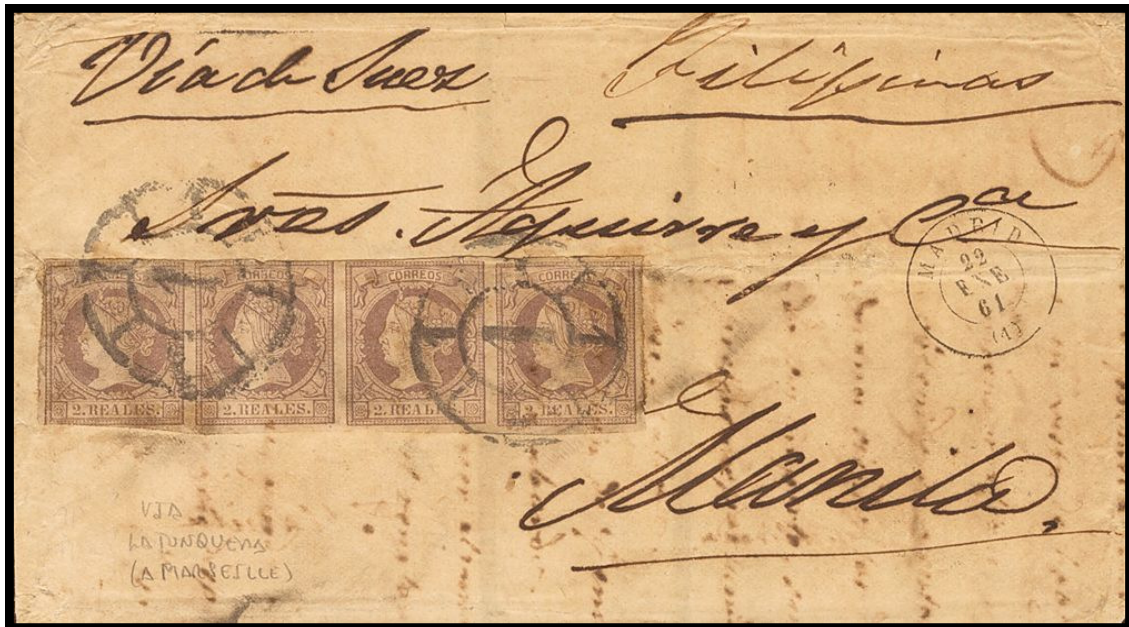 Vía de Suez Filipinas
Sres. Aguirre y Ca
MADRID
22
ENE
61
(1)
CORREOS CORREOS CORREOS
2. REALES. 2. REALES. 2. REALES. 2. REALES.
Manila.
VIA
LA JUNQUERA
(A MARSEILLE)